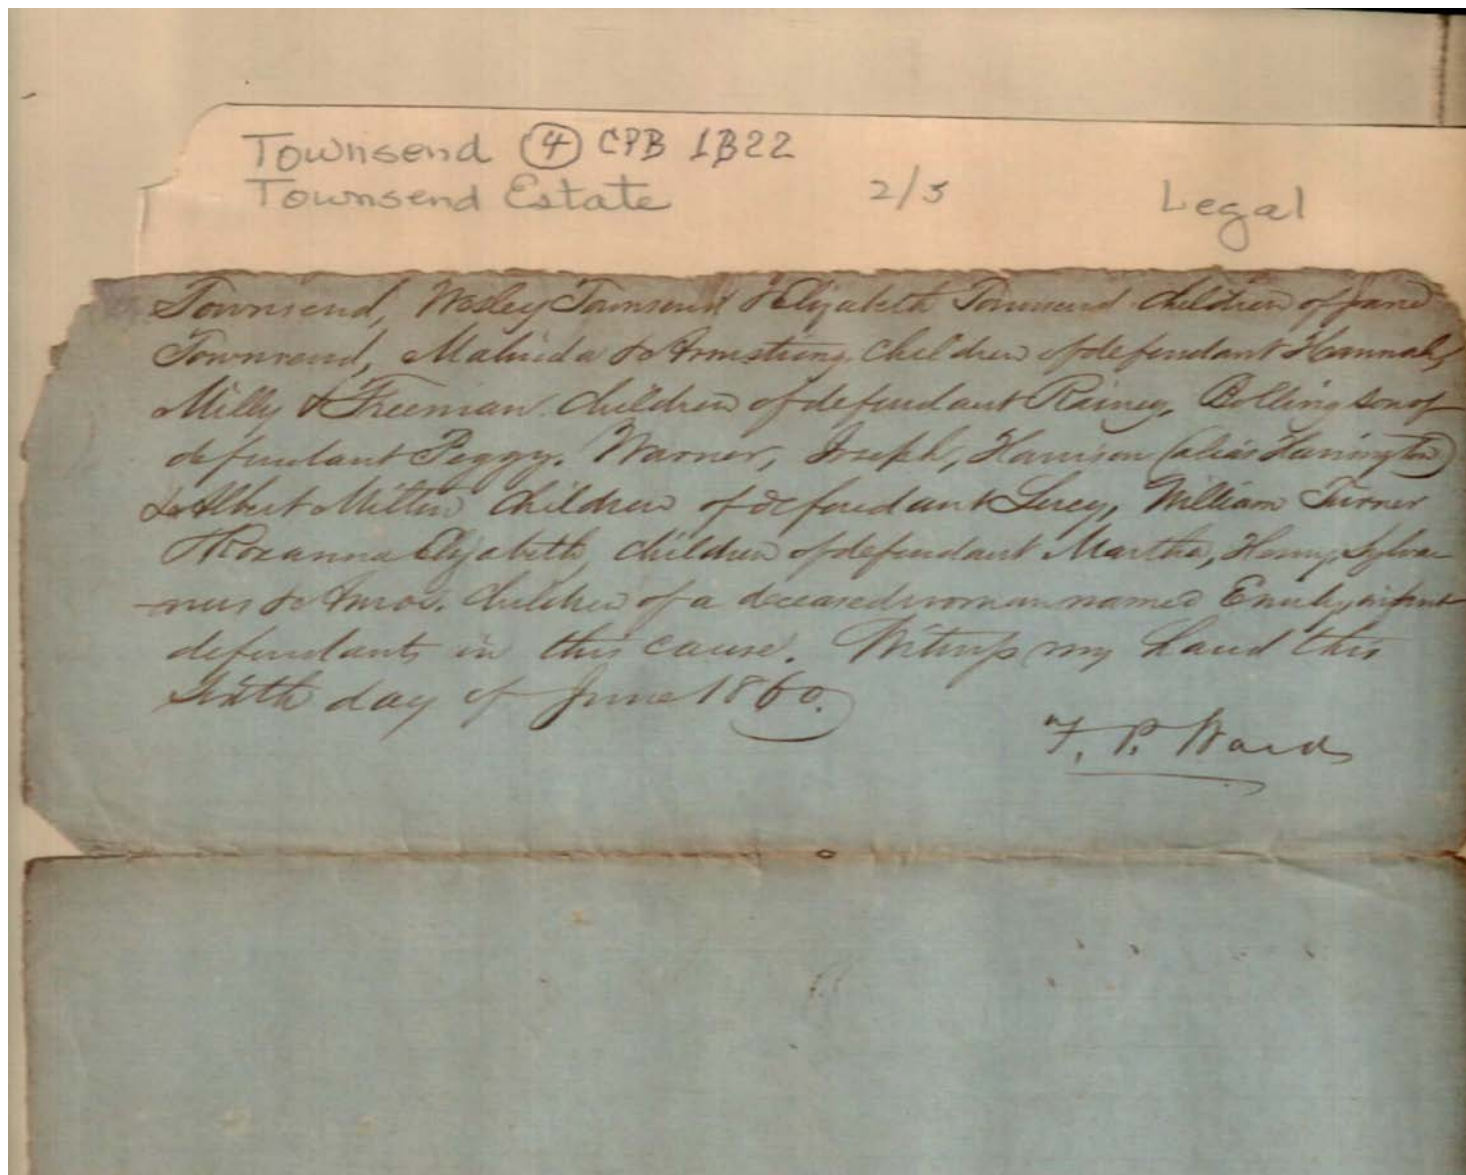 Townsend ④ CPB 1B22
Townsend Estate 2/5 Legal
Townsend, Wesley Townsend & Elizabeth Townsend children of Jane
Townsend, Malinda & Armstrong children of defendant Hannah,
Milly & Freeman children of defendant Rainey, Bolling son of
defendant Peggy. Warner, Joseph, Harrison (alias Harrington)
& Albert Milton children of defendant Lucy, William Turner
& Roxanna Elizabeth children of defendant Martha, Henry, Sylva-
-nus & Amos. children of a deceased woman named Emily, infant
defendants in this cause. Witness my hand this
Sixth day of June 1860.
F. P. Ward